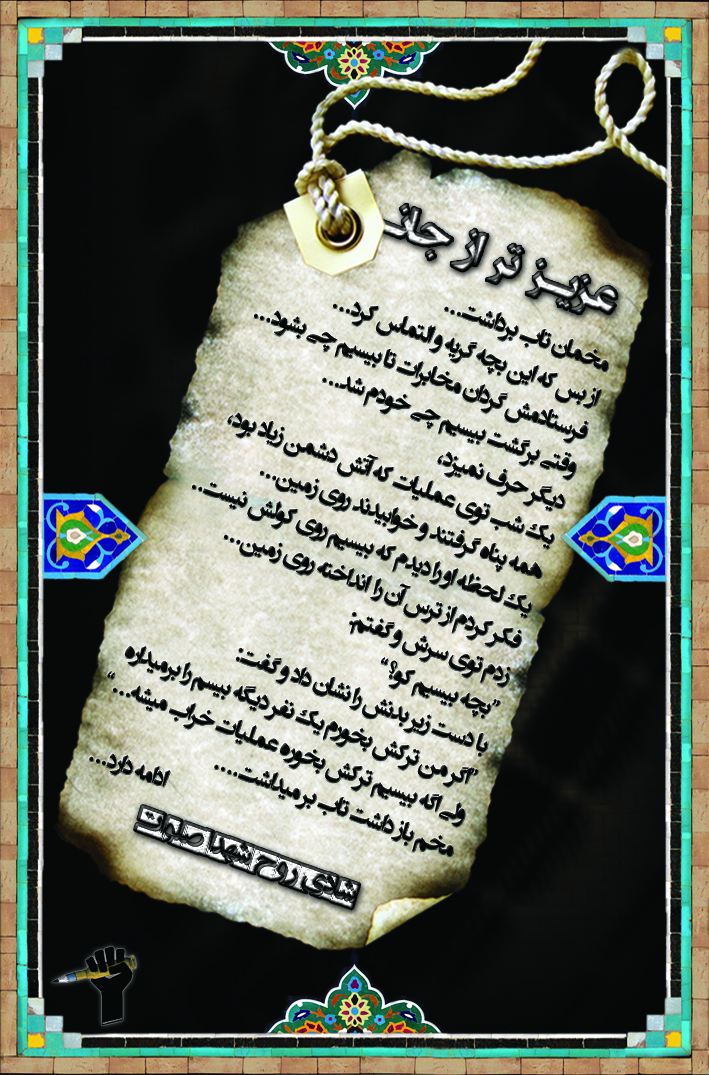 عزیز تر از جانـ
مخمان تاب برداشت...
از بس که این بچه گریه و التماس کرد...
فرستادمش گردان مخابرات تا بیسیم چی بشود...
وقتی برگشت بیسیم چی خودم شد...
دیگر حرف نمیزد،
یک شب توی عملیات که آتش دشمن زیاد بود،
همه پناه گرفتند و خوابیدند روی زمین...
یک لحظه او را دیدم که بیسیم روی کولش نیست..
فکر کردم از ترس آن را انداخته روی زمین...
زدم توی سرش و گفتم:
"بچه بیسیم کو؟"
با دست زیر بدنش را نشان داد و گفت:
"اگر من ترکش بخورم یک نفر دیگه بیسم را برمیداره
ولی اگه بیسیم ترکش بخوره عملیات خراب میشه..."
مخم باز داشت تاب برمیداشت....
ادامه دارد...
شادی روح شهدا صلوات